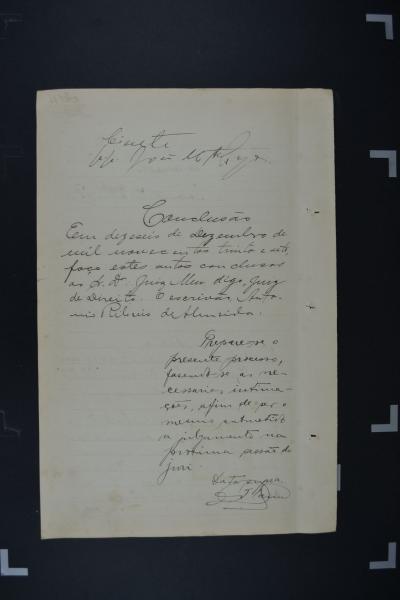 Ciente
Conclusão
Em dezeseis de Dezembro de
mil novecentos trinta e sete,
faço estes autos conclusos
ao Dr. Juiz Mun digo, Juiz
de Direito. O escrivão, Anto-
nio Ribeiro de Almeida.
Prepare-se o
presente processo,
fasendo-se as ne-
cessarias intima-
ções, afim de ser o
mesmo submettido
a julgamento na
proxima sessão do
juri.
Data supra.